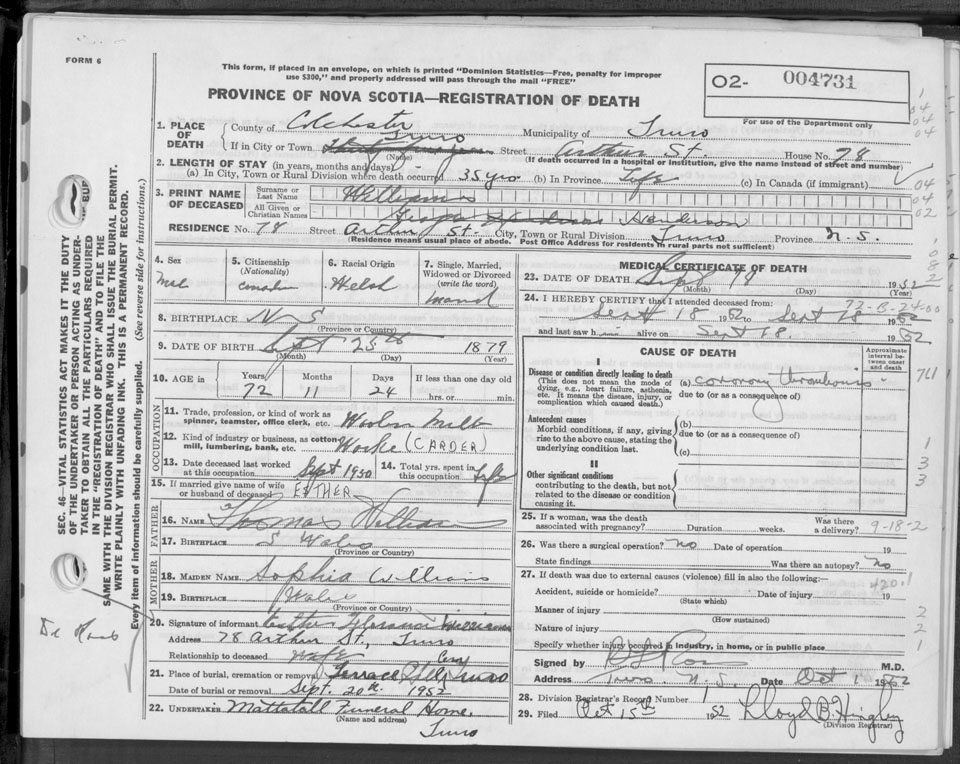 FORM 6
This form, if placed in an envelope, on which is printed "Dominion Statistics—Free, penalty for improper
use $300," and properly addressed will pass through the mail "FREE"
O2- 004731
For use of the Department only
PROVINCE OF NOVA SCOTIA—REGISTRATION OF DEATH
1. PLACE OF DEATH
County of Colchester Municipality of Truro
If in City or Town Truro Street Arthur St. House No. 78
(Name) (If death occurred in a hospital or institution, give the name instead of street and number)
2. LENGTH OF STAY (in years, months and days)
(a) In City, Town or Rural Division where death occurred 35 yrs (b) In Province Life (c) In Canada (if immigrant)
3. PRINT NAME OF DECEASED
Surname or Last Name Williams
All Given or Christian Names Henderson
RESIDENCE No. 78 Street Arthur St. City, Town or Rural Division Truro Province N. S.
(Residence means usual place of abode. Post Office Address for residents in rural parts not sufficient)
4. Sex
Male
5. Citizenship
(Nationality)
Canadian
6. Racial Origin
Welsh
7. Single, Married, Widowed or Divorced
(write the word)
Married
8. BIRTHPLACE N S
(Province or Country)
9. DATE OF BIRTH Sept 25th 1879
(Month) (Day) (Year)
10. AGE in Years 72 Months 11 Days 24 If less than one day old
hrs. or min.
OCCUPATION
11. Trade, profession, or kind of work as
spinner, teamster, office clerk, etc. Woolen Mill
12. Kind of industry or business, as cotton
mill, lumbering, bank, etc. Worke (CARDER)
13. Date deceased last worked
at this occupation Sept 1950
14. Total yrs. spent in
this occupation Life
15. If married give name of wife
or husband of deceased ESTHER
FATHER
16. NAME Thomas Williams
17. BIRTHPLACE S Wales
(Province or Country)
MOTHER
18. MAIDEN NAME Sophia Williams
19. BIRTHPLACE Wales
(Province or Country)
20. Signature of informant Esther Williams
Address 78 Arthur St., Truro
Relationship to deceased Wife
21. Place of burial, cremation or removal Terrace Hill Cem Truro
Date of burial or removal Sept. 20th 1952
22. UNDERTAKER Mattatall Funeral Home,
(Name and address)
Truro
MEDICAL CERTIFICATE OF DEATH
23. DATE OF DEATH Sept 18 1952
(Month) (Day) (Year)
24. I HEREBY CERTIFY that I attended deceased from:
72-B-24-00
Sept 18 1952 to Sept 18 1952
and last saw h im alive on Sept 18 1952
CAUSE OF DEATH
Approximate interval between onset and death
I
Disease or condition directly leading to death
(This does not mean the mode of
dying, e.g., heart failure, asthenia,
etc. It means the disease, injury, or
complication which caused death.)
(a) coronary thrombosis
due to (or as a consequence of)
Antecedent causes
Morbid conditions, if any, giving
rise to the above cause, stating the
underlying condition last.
(b)
due to (or as a consequence of)
(c)
II
Other significant conditions
contributing to the death, but not
related to the disease or condition
causing it.
25. If a woman, was the death
associated with pregnancy? Duration weeks. Was there
a delivery? 9-18-2
26. Was there a surgical operation? No Date of operation 19
State findings Was there an autopsy? No
27. If death was due to external causes (violence) fill in also the following:—
420.1
Accident, suicide or homicide? Date of injury 19
(State which)
Manner of injury
(How sustained)
Nature of injury
Specify whether injury occurred in industry, in home, or in public place
Signed by Ross M.D.
Address Truro N. S. Date Oct 1 1952
28. Division Registrar's Record Number 1
29. Filed Oct 15th 1952 Lloyd B. Hingley
(Division Registrar)
SEC. 46—VITAL STATISTICS ACT MAKES IT THE DUTY
OF THE UNDERTAKER OR PERSON ACTING AS UNDER-
TAKER TO OBTAIN ALL THE PARTICULARS REQUIRED
IN THE "REGISTRATION OF DEATH" AND TO FILE THE
SAME WITH THE DIVISION REGISTRAR WHO SHALL ISSUE THE BURIAL PERMIT.
WRITE PLAINLY WITH UNFADING INK. THIS IS A PERMANENT RECORD.
Every item of information should be carefully supplied. (See reverse side for instructions.)
1
04
04
04
04
04
02
1
3
3
2
2
1